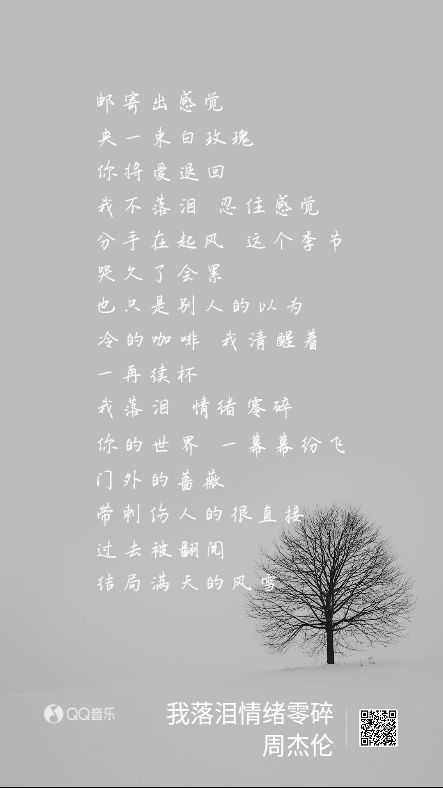 邮寄出感觉
夹一束白玫瑰
你将爱退回
我不落泪 忍住感觉
分手在起风 这个季节
哭久了会累
也只是别人的以为
冷的咖啡 我清醒着
一再续杯
我落泪 情绪零碎
你的世界 一幕幕纷飞
门外的蔷薇
带刺伤人的很直接
过去被翻阅
结局满天的风雪
QQ音乐
我落泪情绪零碎
周杰伦